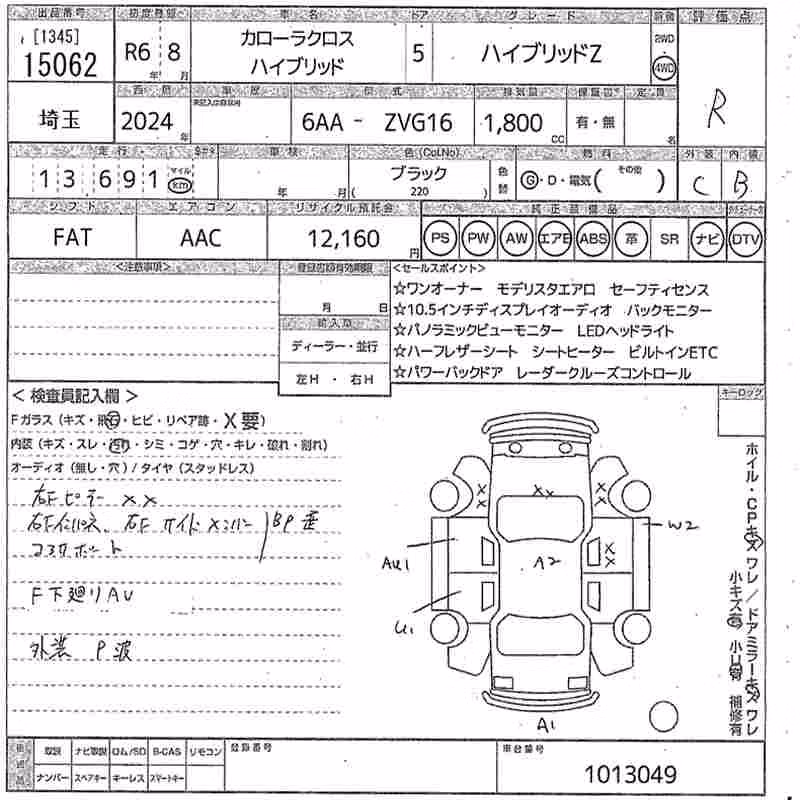 出品番号 初度登録 車名 ドア グレード 評価点
[1345]
15062 R6年 8月 カローラクロス ハイブリッド 5 ハイブリッドZ 2WD 4WD R
西暦 車歴 型式 排気量 保証書 定員
埼玉 2024年 6AA - ZVG16 1,800cc 有・無 名
走行 車検 色(Col.No) 燃料 外装 内装
13,691 マイル km 年 月 ブラック (220) 色替 G・D・電気( その他 ) C B
シフト エアコン リサイクル預託金 純正装備品
FAT AAC 12,160円 PS PW AW エアB ABS 革 SR ナビ DTV
<注意事項> 登録書類有効期限 <セールスポイント>
☆ワンオーナー モデリスタエアロ セーフティセンス
月 日 ☆10.5インチディスプレイオーディオ バックモニター
輸入車 ☆パノラミックビューモニター LEDヘッドライト
ディーラー・並行 ☆ハーフレザーシート シートヒーター ビルトインETC
左H ・ 右H ☆パワーバックドア レーダークルーズコントロール
キーロック
< 検査員記入欄 >
Fガラス(キズ・飛石・ヒビ・リペア跡・X要)
内装(キズ・スレ・汚れ・シミ・コゲ・穴・キレ・破れ・割れ)
オーディオ(無し・穴)/タイヤ(スタッドレス)
右Fピラー XX
右Fインパネ、右F サイドメンバー
コアサポート
F下廻りAU
外装 P波
XX
X X
X X
W2
AU1
A2
X X
U1
A1
ホイル・CPキズワレ/ドアミラーキズワレ
小キズ有 小U有 補修有
取説 ナビ取説 ロム/SD B-CAS リモコン 登録番号 車台番号
ナンバー スペアキー キーレス スマートキー 1013049